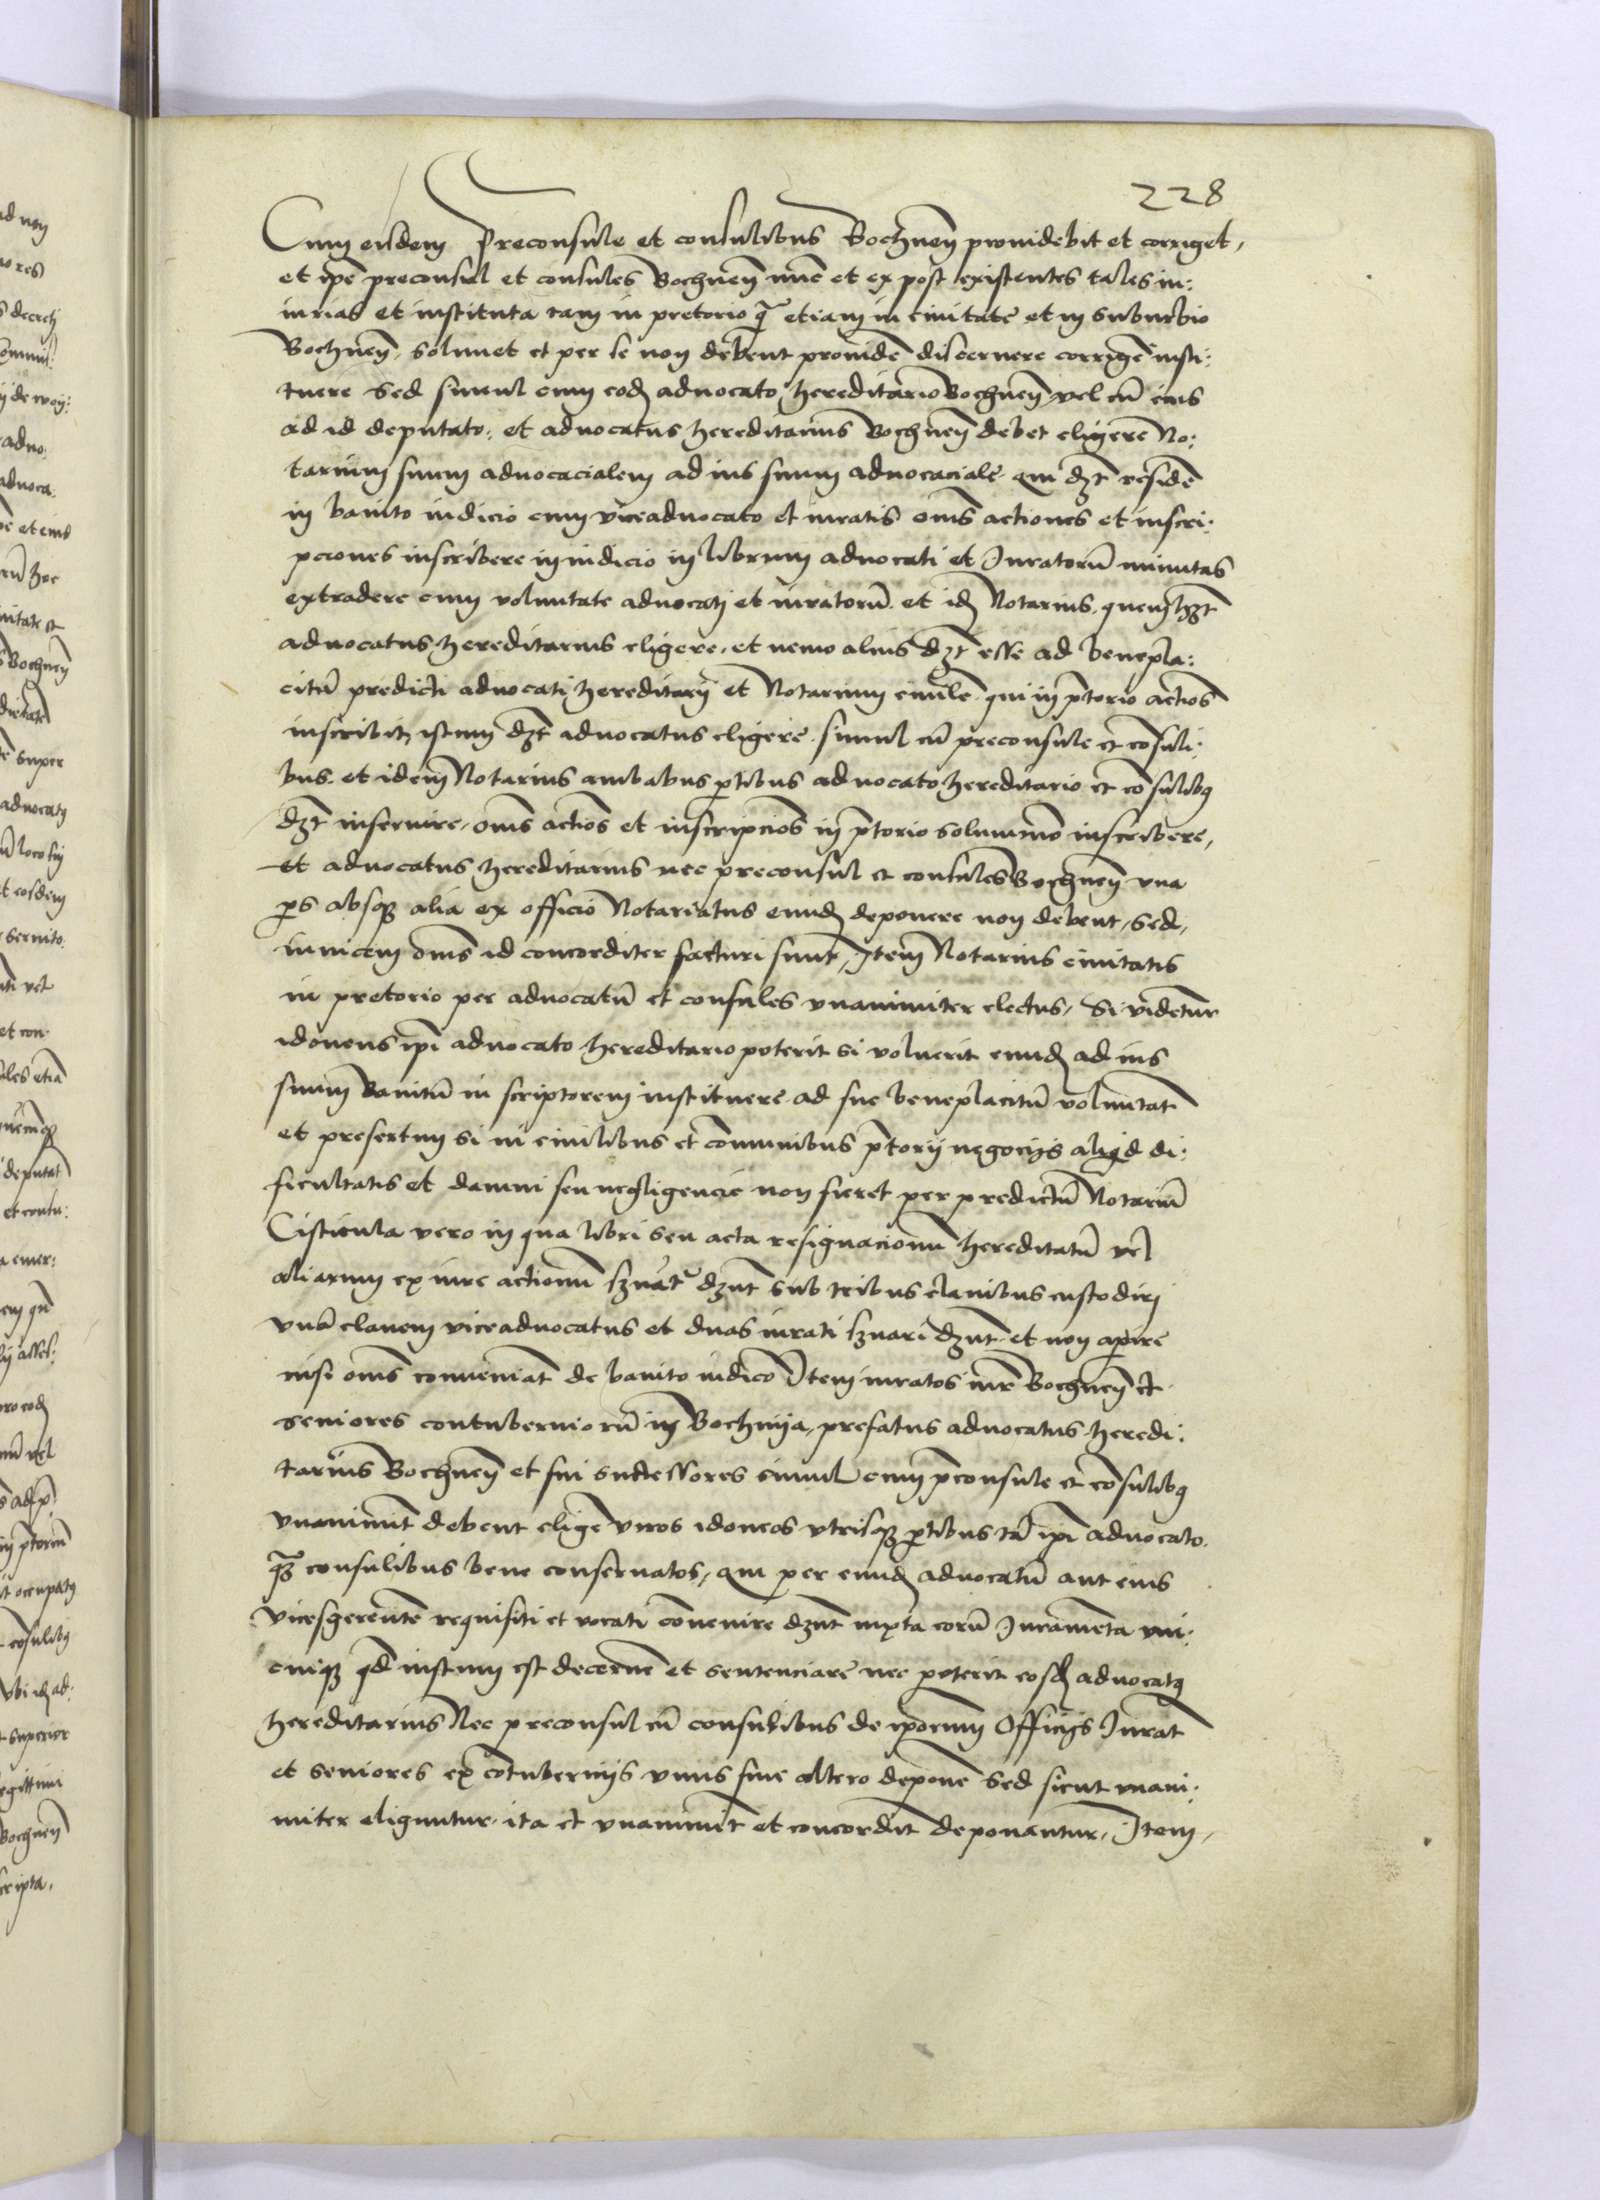 228
Cum eisdem Preconsule et consulibus Bochneñ providebit et corriget,
et ipẽ preconsul et consules Bochneñ nunc et ex post existentes tales in:
iurias et instituta tam in pretorio q̃ etiam in civitate et in suburbio
Bochneñ, solumet et per se non debent providẽ discernere corrigẽ insti:
tuere sed simul cum eod advocato hereditario Bochneñ vel cũ eius
ad id deputato: et advocatus hereditarius Bochneñ debet eligere No:
tarium suum advocacialem ad ius suum advocaciale qui dꝫt residẽ
in banito iudicio cum viceadvocato et iuratis om̃s actiones et inscri:
pciones inscribere in iudicio in librum advocati et Iuratorũ minutas
extradere cum voluntate advocati et iuratorũ. et id Notarius, quem hꝫt
advocatus hereditarius eligere, et nemo alius dꝫt esse ad benepla:
citũ predicti advocati hereditarij et Notarium civilẽ qui in p̃torio actiõs
inscribit, istum dꝫt advocatus eligere simul cũ preconsule et cõsuli:
bus. et idem Notarius ambabus ptibus advocato hereditario et cõsulibꝫ
dꝫt inservire, om̃s actiõs et inscripciõs in p̃torio solummõ inscribere,
et advocatus hereditarius nec preconsul et consules Bochneñ una
ps absqꝫ alia ex officio Notariatus eund deponere non debent, sed,
invicem om̃s id concorditer facturi sunt, Item Notarius civitatis
in pretorio per advocatũ et consules unanimiter electus, Si videtur
idoneus ipĩ advocato hereditario poterit si voluerit eund ad ius
suum banitũ in scriptorem instituere ad sue beneplacitũ voluntat
et presertim si in civilibus et cõmunibus p̃torij negocijs aliqd di:
ficultatis et damni seu negligencie non fieret per predictũ Notariũ
Cisticula vero in qua libri seu acta resignacionũ hereditatũ vel
aliarum ex iure actionũ sꝫuãt dꝫnt sub tribus clavibus custodiri
unã clavem viceadvocatus et duas iurati sꝫuari dꝫnt et non apire
nisi om̃s conveniãt de banito iudico Item iuratos iurẽ Bochneñ et
seniores contuberniorũ in Bochnija, prefatus advocatus heredi:
tarius Bochneñ et sui successores simul cum p̃consule et cõsulibꝫ
unanimit̃ debent eligẽ viros idoneos utrisqꝫ ptibus tã ipĩ advocato
qꝫ consulibus bene conservatos, qui per eund advocatũ aut eius
vicesgerentẽ requisiti et vocati cõvenire dꝫnt iuxta eorũ Iuramẽta uni:
cuiqꝫ qd iustum est decernẽ et sentenciare nec poterit eosd advocatꝫ
hereditarius Nec preconsul cũ consulibus de ipõrum Officijs Iurat
et seniores ex cõtubernijs unus sine altero deponẽ sed sicut unani:
miter eliguntur, ita et unanimit̃ et concordit̃ deponantur, Item,